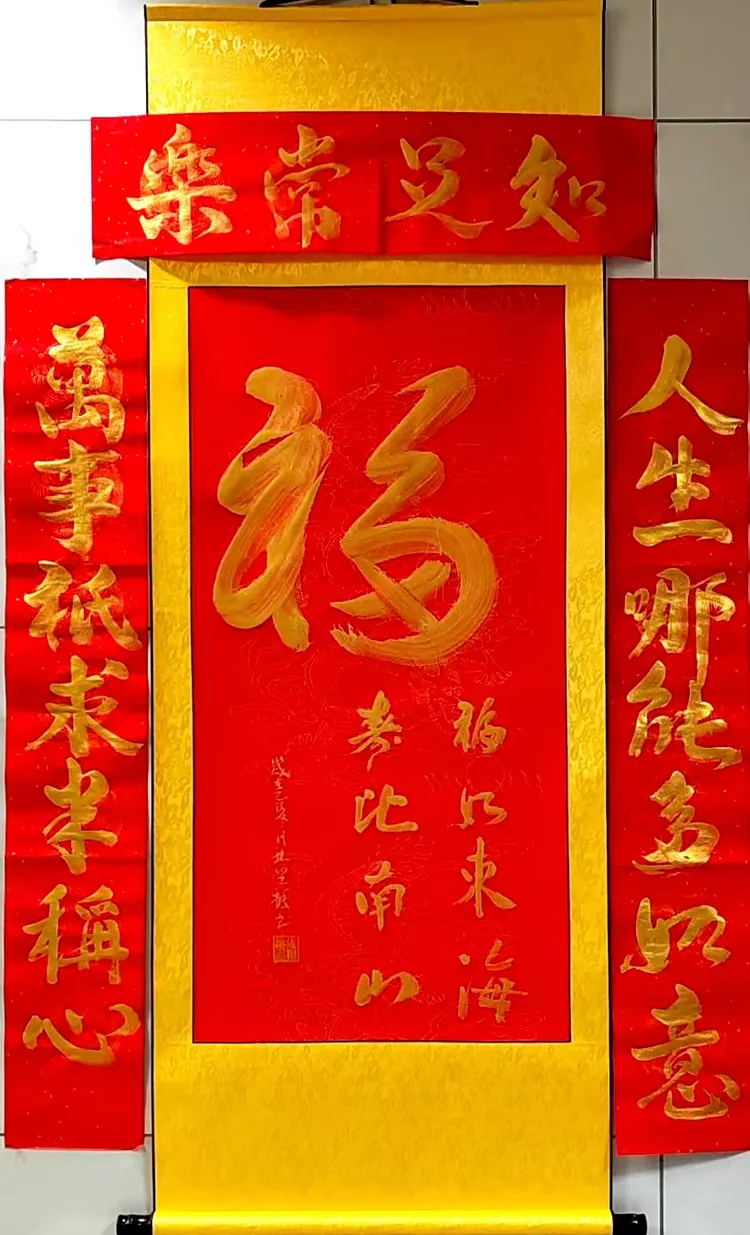 知足常樂
人生哪能多如意
萬事祇求半稱心
福
福如東海
壽比南山